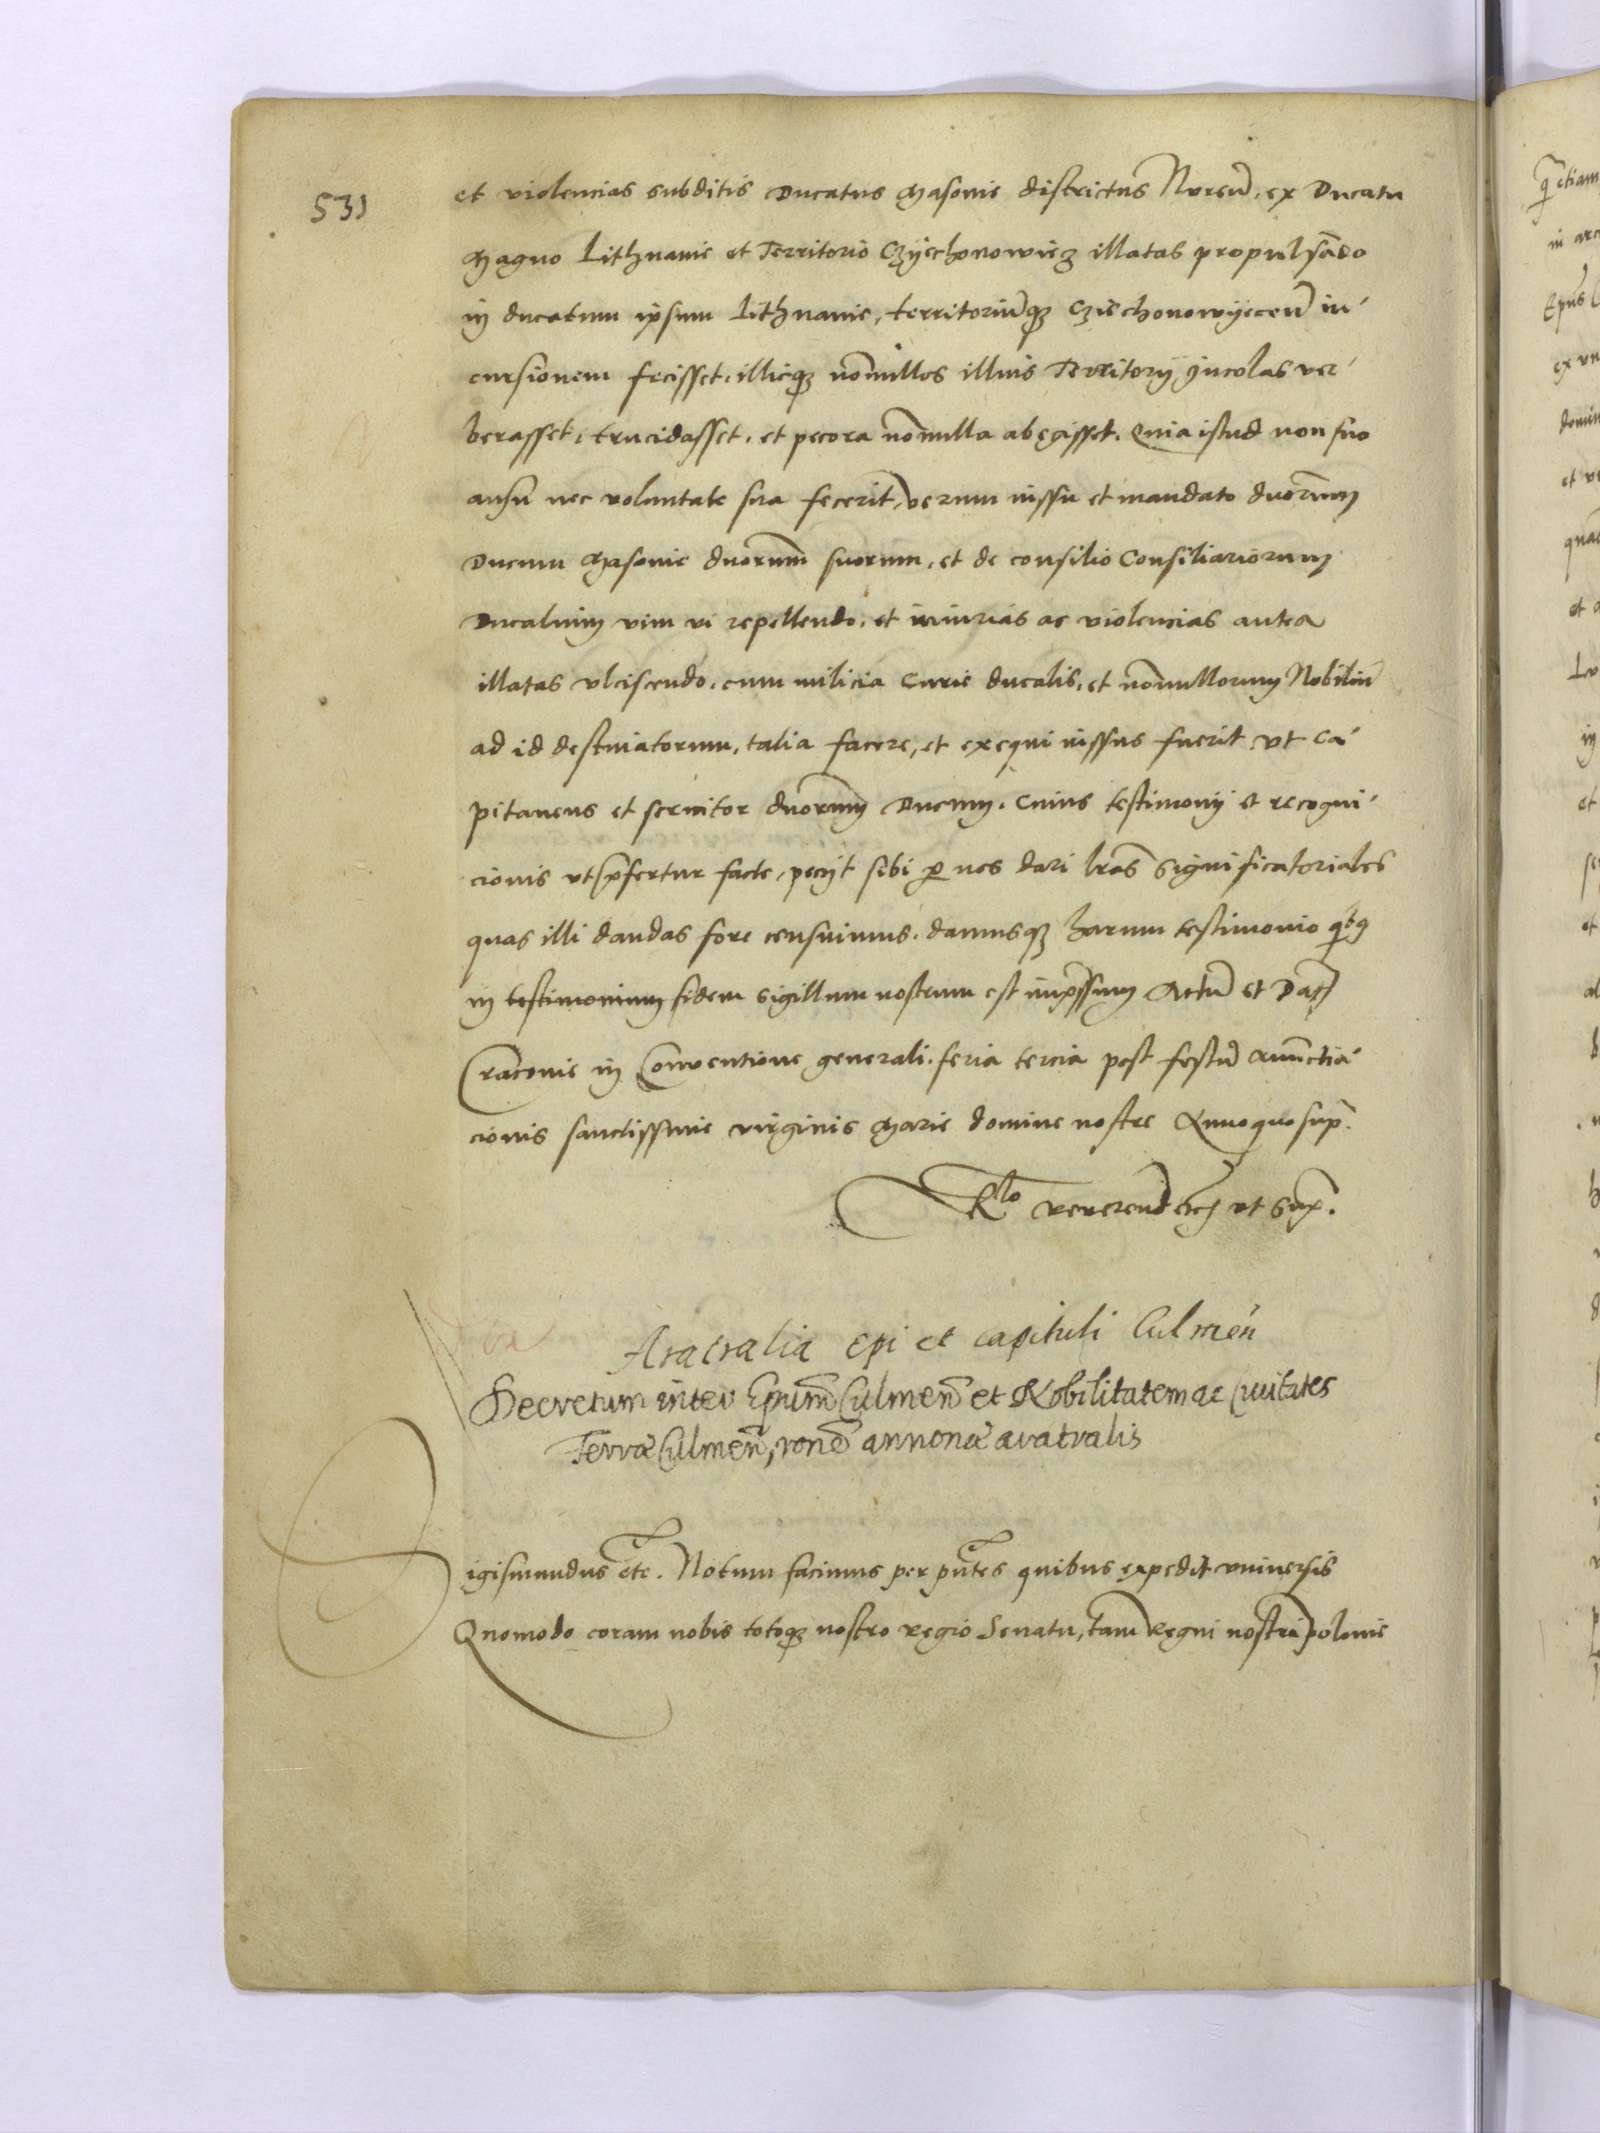 531
et violencias subditis Ducatus Masovie districtus Nuren̄. ex Ducatu
Magno Lithuanie et Territorio Czyechonowiez illatas propulsādo
in ducatum ipsum Lithuanie, territoriūqȝ Cziechonowyecen̄ in-
cursionem fecisset. illicqȝ nōnullos illius Territorij Incolas ver-
berasset, trucidasset. et pecora nōnulla abegisset. Quia istud non suo
ausu nec voluntate sua fecerit, verum iussu et mandato dnorum
Ducum Masovie dnorum suorum, et de consilio Consiliariorum
Ducalium vim vi repellendo. et iniurias ac violencias antea
illatas ulciscendo. cum milicia Curie ducalis, et nōnullorum Nobiliū
ad id destinatorum, talia facere, et exequi iussus fuerit ut Ca-
pitaneus et servitor dnorum Ducum. Cuius testimonij et recogni-
cionis ut p̄fertur facte, pecijt sibi p nos dari lras Significatoriales
quas illi dandas fore censuimus. damusqȝ harum testimonio
in testimonium fidem sigillum nostrum est imp̄ssum Actū et Dat
Cracovie in Conventione generali. feria tercia post festū Annūctia-
cionis sanctissime virginis Marie domine nostre Anno quo sup̄.
Rlo reverend etc ut Sup̄.
Aratralia Epi et capituli Culmen̄
Decretum inter Epum Culmen̄ et Nobilitatem ac Civitates
Terræ Culmen̄, rone annonæ aratralis
Sigismundus etc. Notum facimus per pn̄tes quibus expedit universis
Quomodo coram nobis totoqȝ nostro regio Senatu, tam Regni nostri polonie